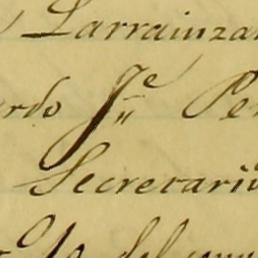 Larrainza
rdo Jᵉ Pe
Secretari
del